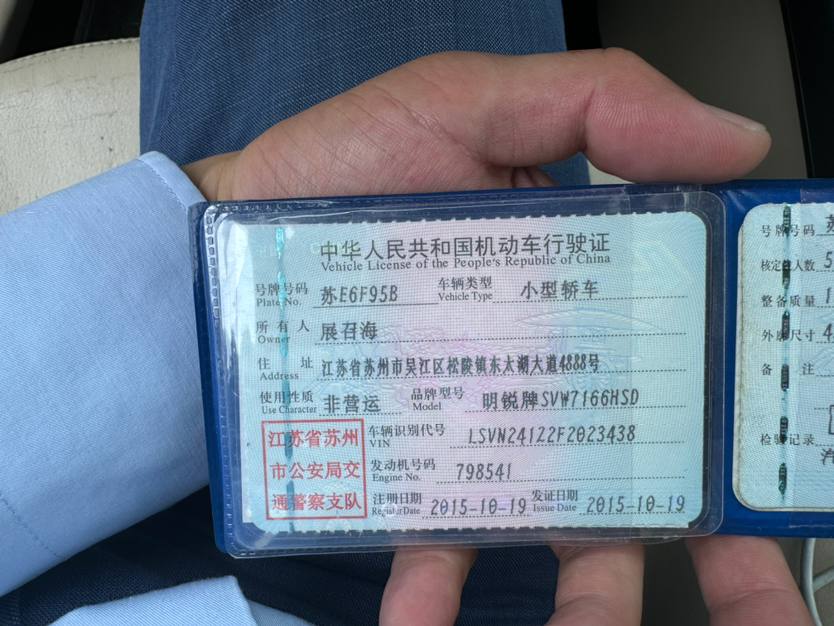 中华人民共和国机动车行驶证
Vehicle License of the People's Republic of China
号牌号码 苏E6F95B 车辆类型 小型轿车
Plate No. Vehicle Type
所有人 展召海
Owner
住址 江苏省苏州市吴江区松陵镇东太湖大道4888号
Address
使用性质 非营运 品牌型号 明锐牌SVW7166HSD
Use Character Model
江苏省苏州 车辆识别代号 LSVN241Z2F2023438
VIN
市公安局交 发动机号码 798541
Engine No.
通警察支队 注册日期 2015-10-19 发证日期 2015-10-19
Register Date Issue Date
号牌号码
核定载人数 5
整备质量
外廓尺寸 4
备注
检验记录